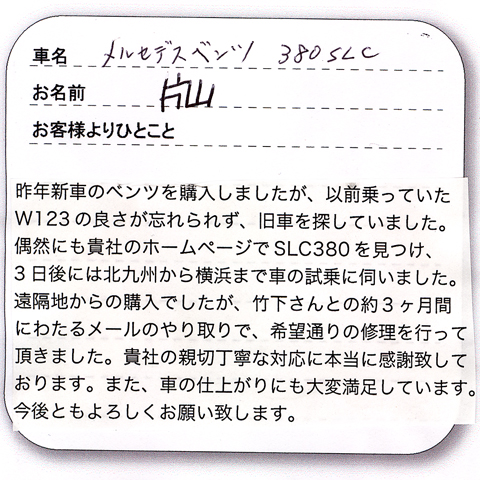 車名 メルセデスベンツ 380SLC
お名前 片山
お客様よりひとこと
昨年新車のベンツを購入しましたが、以前乗っていた
W123の良さが忘れられず、旧車を探していました。
偶然にも貴社のホームページでSLC380を見つけ、
3日後には北九州から横浜まで車の試乗に伺いました。
遠隔地からの購入でしたが、竹下さんとの約3ヶ月間
にわたるメールのやり取りで、希望通りの修理を行って
頂きました。貴社の親切丁寧な対応に本当に感謝致して
おります。また、車の仕上がりにも大変満足しています。
今後ともよろしくお願い致します。